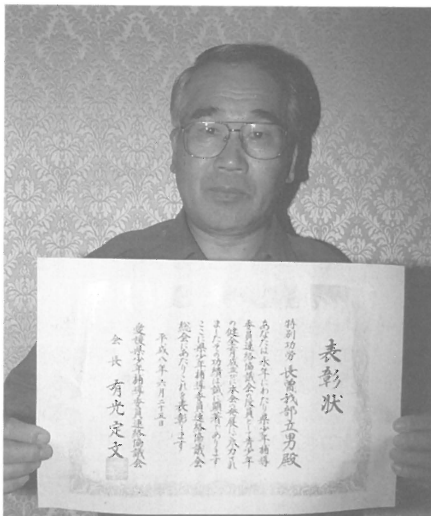 表彰状
特別功労 長曽我部立男殿
あなたは永年にわたり県少年補導
委員連絡協議会の役員として青少年
の健全育成並びに本会の発展に尽力され
ましたその功績は誠に顕著であります
ここに県少年補導委員連絡協議会
総会にあたりこれを表彰します
平成八年六月二十五日
愛媛県少年補導委員連絡協議会
会長 有光定文